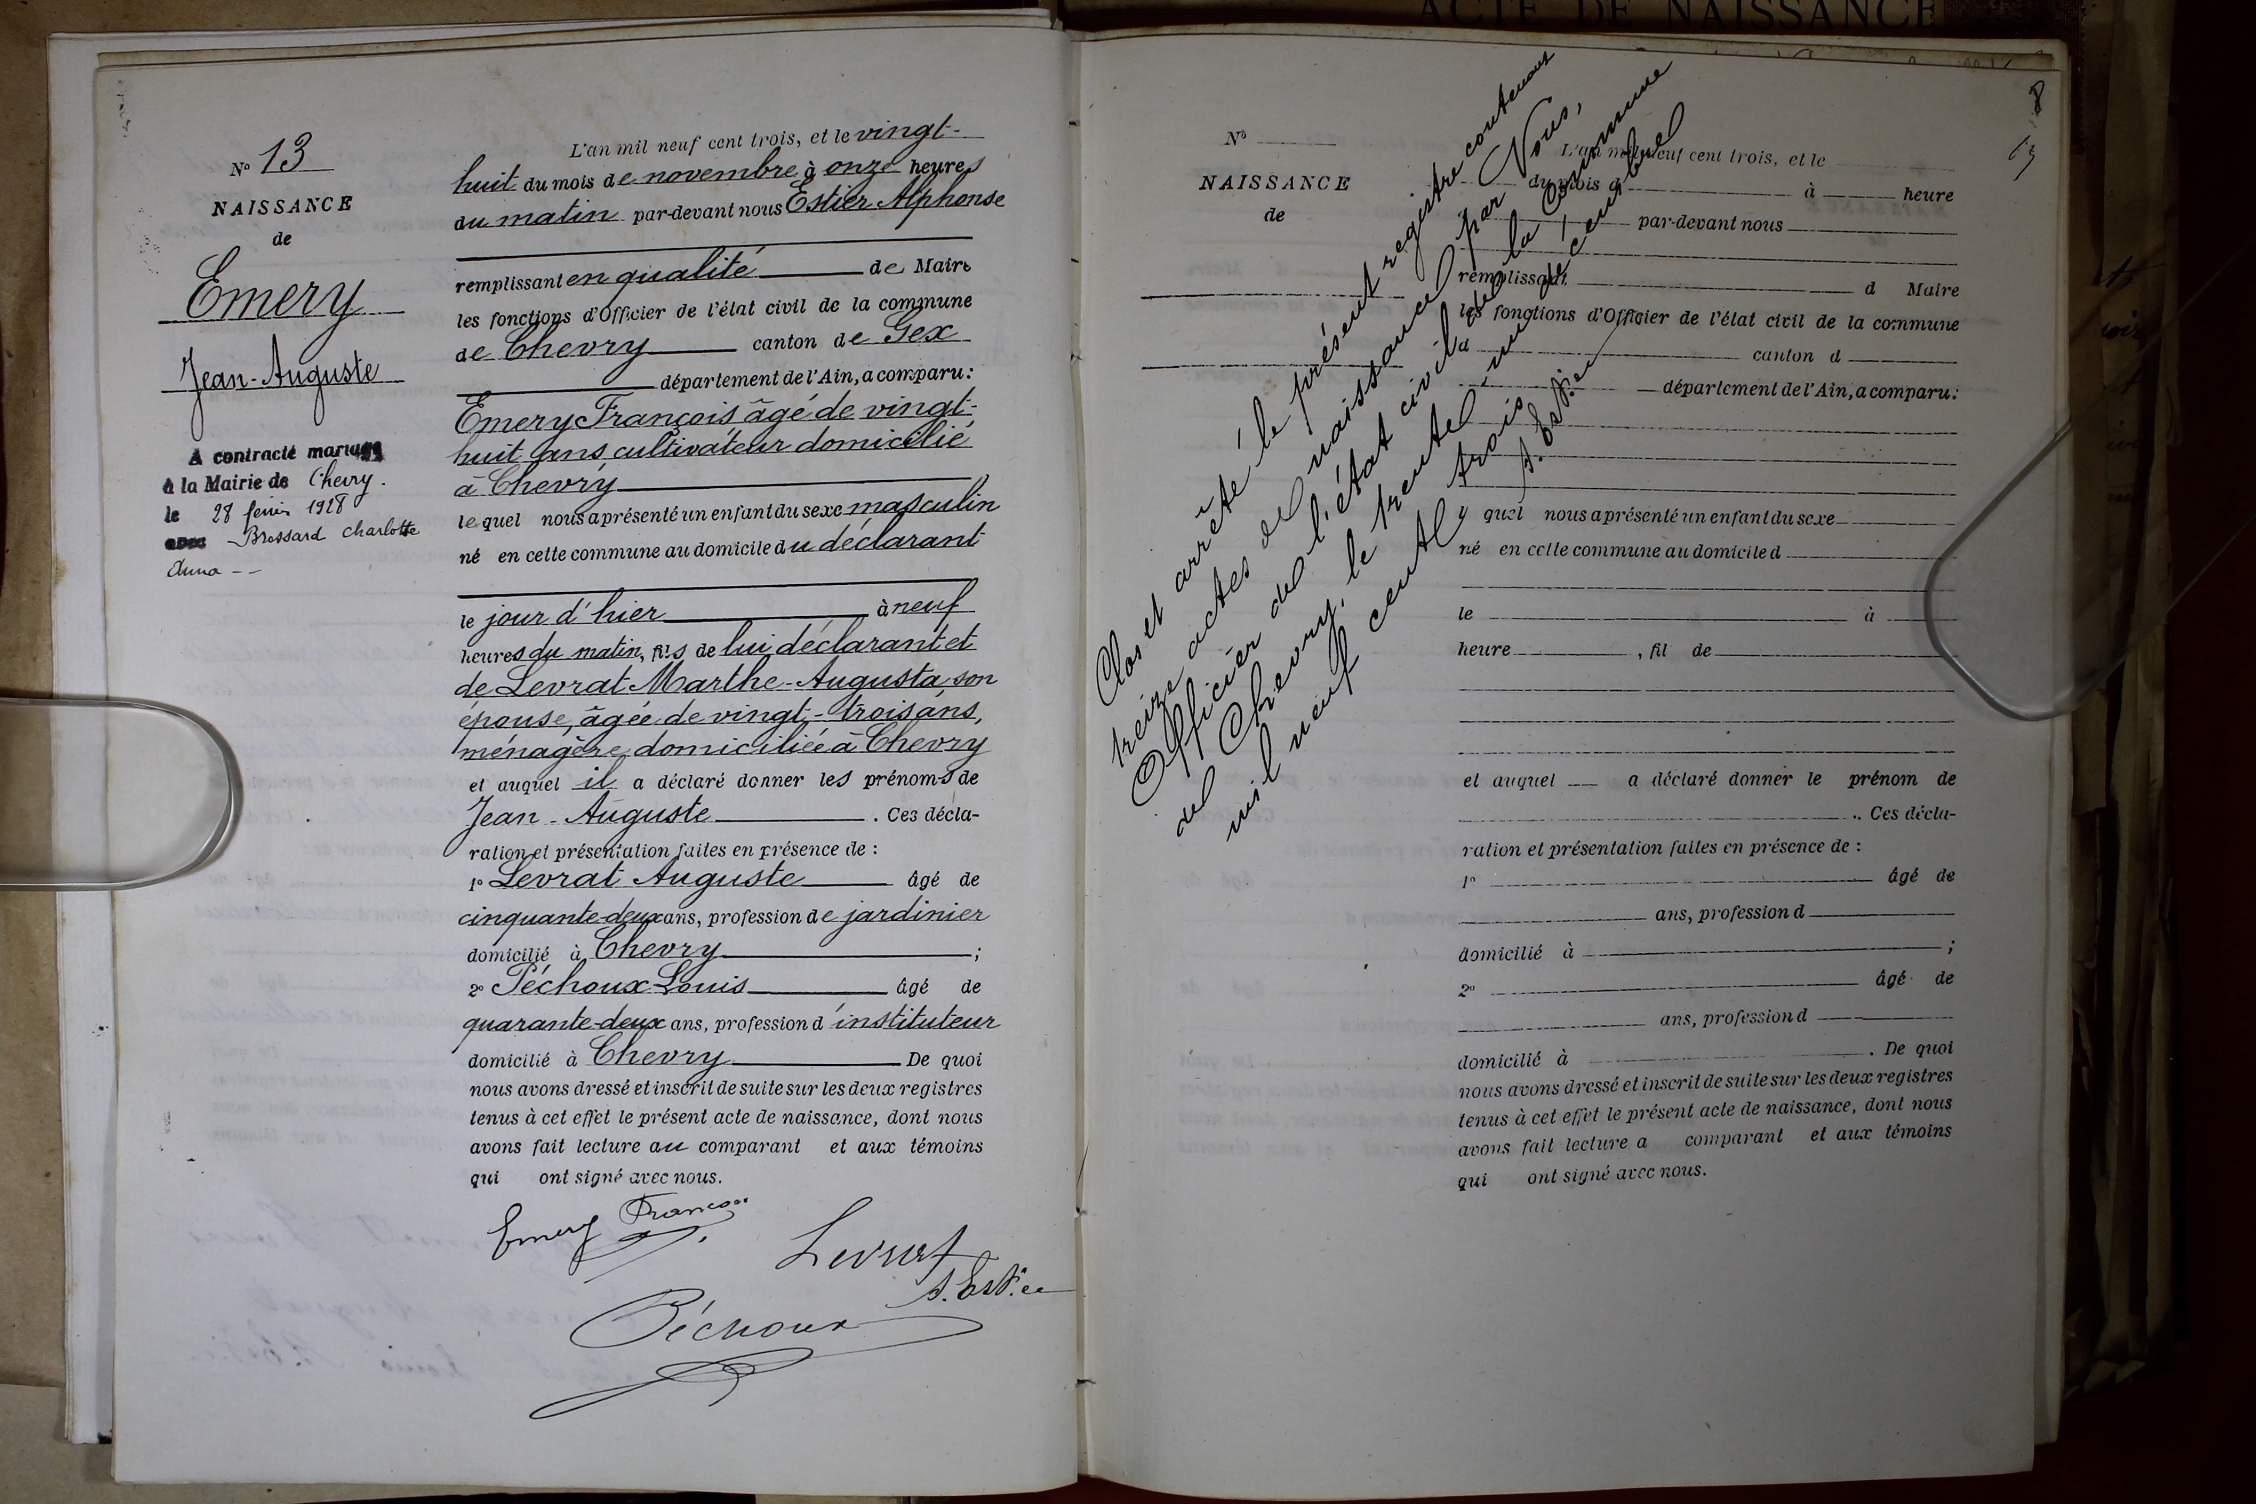 ACTE DE NAISSANCE
N° 13
NAISSANCE
de
Emery
Jean-Auguste
A contracté mariage
à la Mairie de Chevry.
le 28 février 1928
avec Brossard Charlotte
Anna --
L'an mil neuf cent trois, et le vingt-
huit du mois de novembre à onze heures
du matin par-devant nous Estier Alphonse
remplissant en qualité de Maire
les fonctions d'Officier de l'état civil de la commune
de Chevry canton de Gex
département de l'Ain, a comparu:
Emery François âgé de vingt-
huit ans cultivateur domicilié
à Chevry
lequel nous a présenté un enfant du sexe masculin
né en cette commune au domicile du déclarant
le jour d'hier à neuf
heures du matin, fils de lui déclarant et
de Levrat Marthe-Augusta, son
épouse, âgée de vingt-trois ans,
ménagère domiciliée à Chevry
et auquel il a déclaré donner les prénoms de
Jean-Auguste. Ces décla-
ration et présentation faites en présence de :
1° Levrat Auguste âgé de
cinquante-deux ans, profession de jardinier
domicilié à Chevry ;
2° Péchoux Louis âgé de
quarante-deux ans, profession d'instituteur
domicilié à Chevry De quoi
nous avons dressé et inscrit de suite sur les deux registres
tenus à cet effet le présent acte de naissance, dont nous
avons fait lecture au comparant et aux témoins
qui ont signé avec nous.
Emery François
Levrat
A. Estier
Péchoux
8
13
N°
NAISSANCE
de
L'an mil neuf cent trois, et le
du mois d à heure
par-devant nous
remplissant d Maire
les fonctions d'Officier de l'état civil de la commune
d canton d
département de l'Ain, a comparu:
quel nous a présenté un enfant du sexe
né en cette commune au domicile d
le à
heure , fil de
et auquel a déclaré donner le prénom de
. Ces décla-
ration et présentation faites en présence de :
1° âgé de
ans, profession d
domicilié à ;
2° âgé de
ans, profession d
domicilié à . De quoi
nous avons dressé et inscrit de suite sur les deux registres
tenus à cet effet le présent acte de naissance, dont nous
avons fait lecture a comparant et aux témoins
qui ont signé avec nous.
Clos et arrêté le présent registre contenant
treize actes de naissance par Nous,
Officier de l'état civil de la Commune
de Chevry, le trente-un décembre
mil neuf cent trois
A. Estier